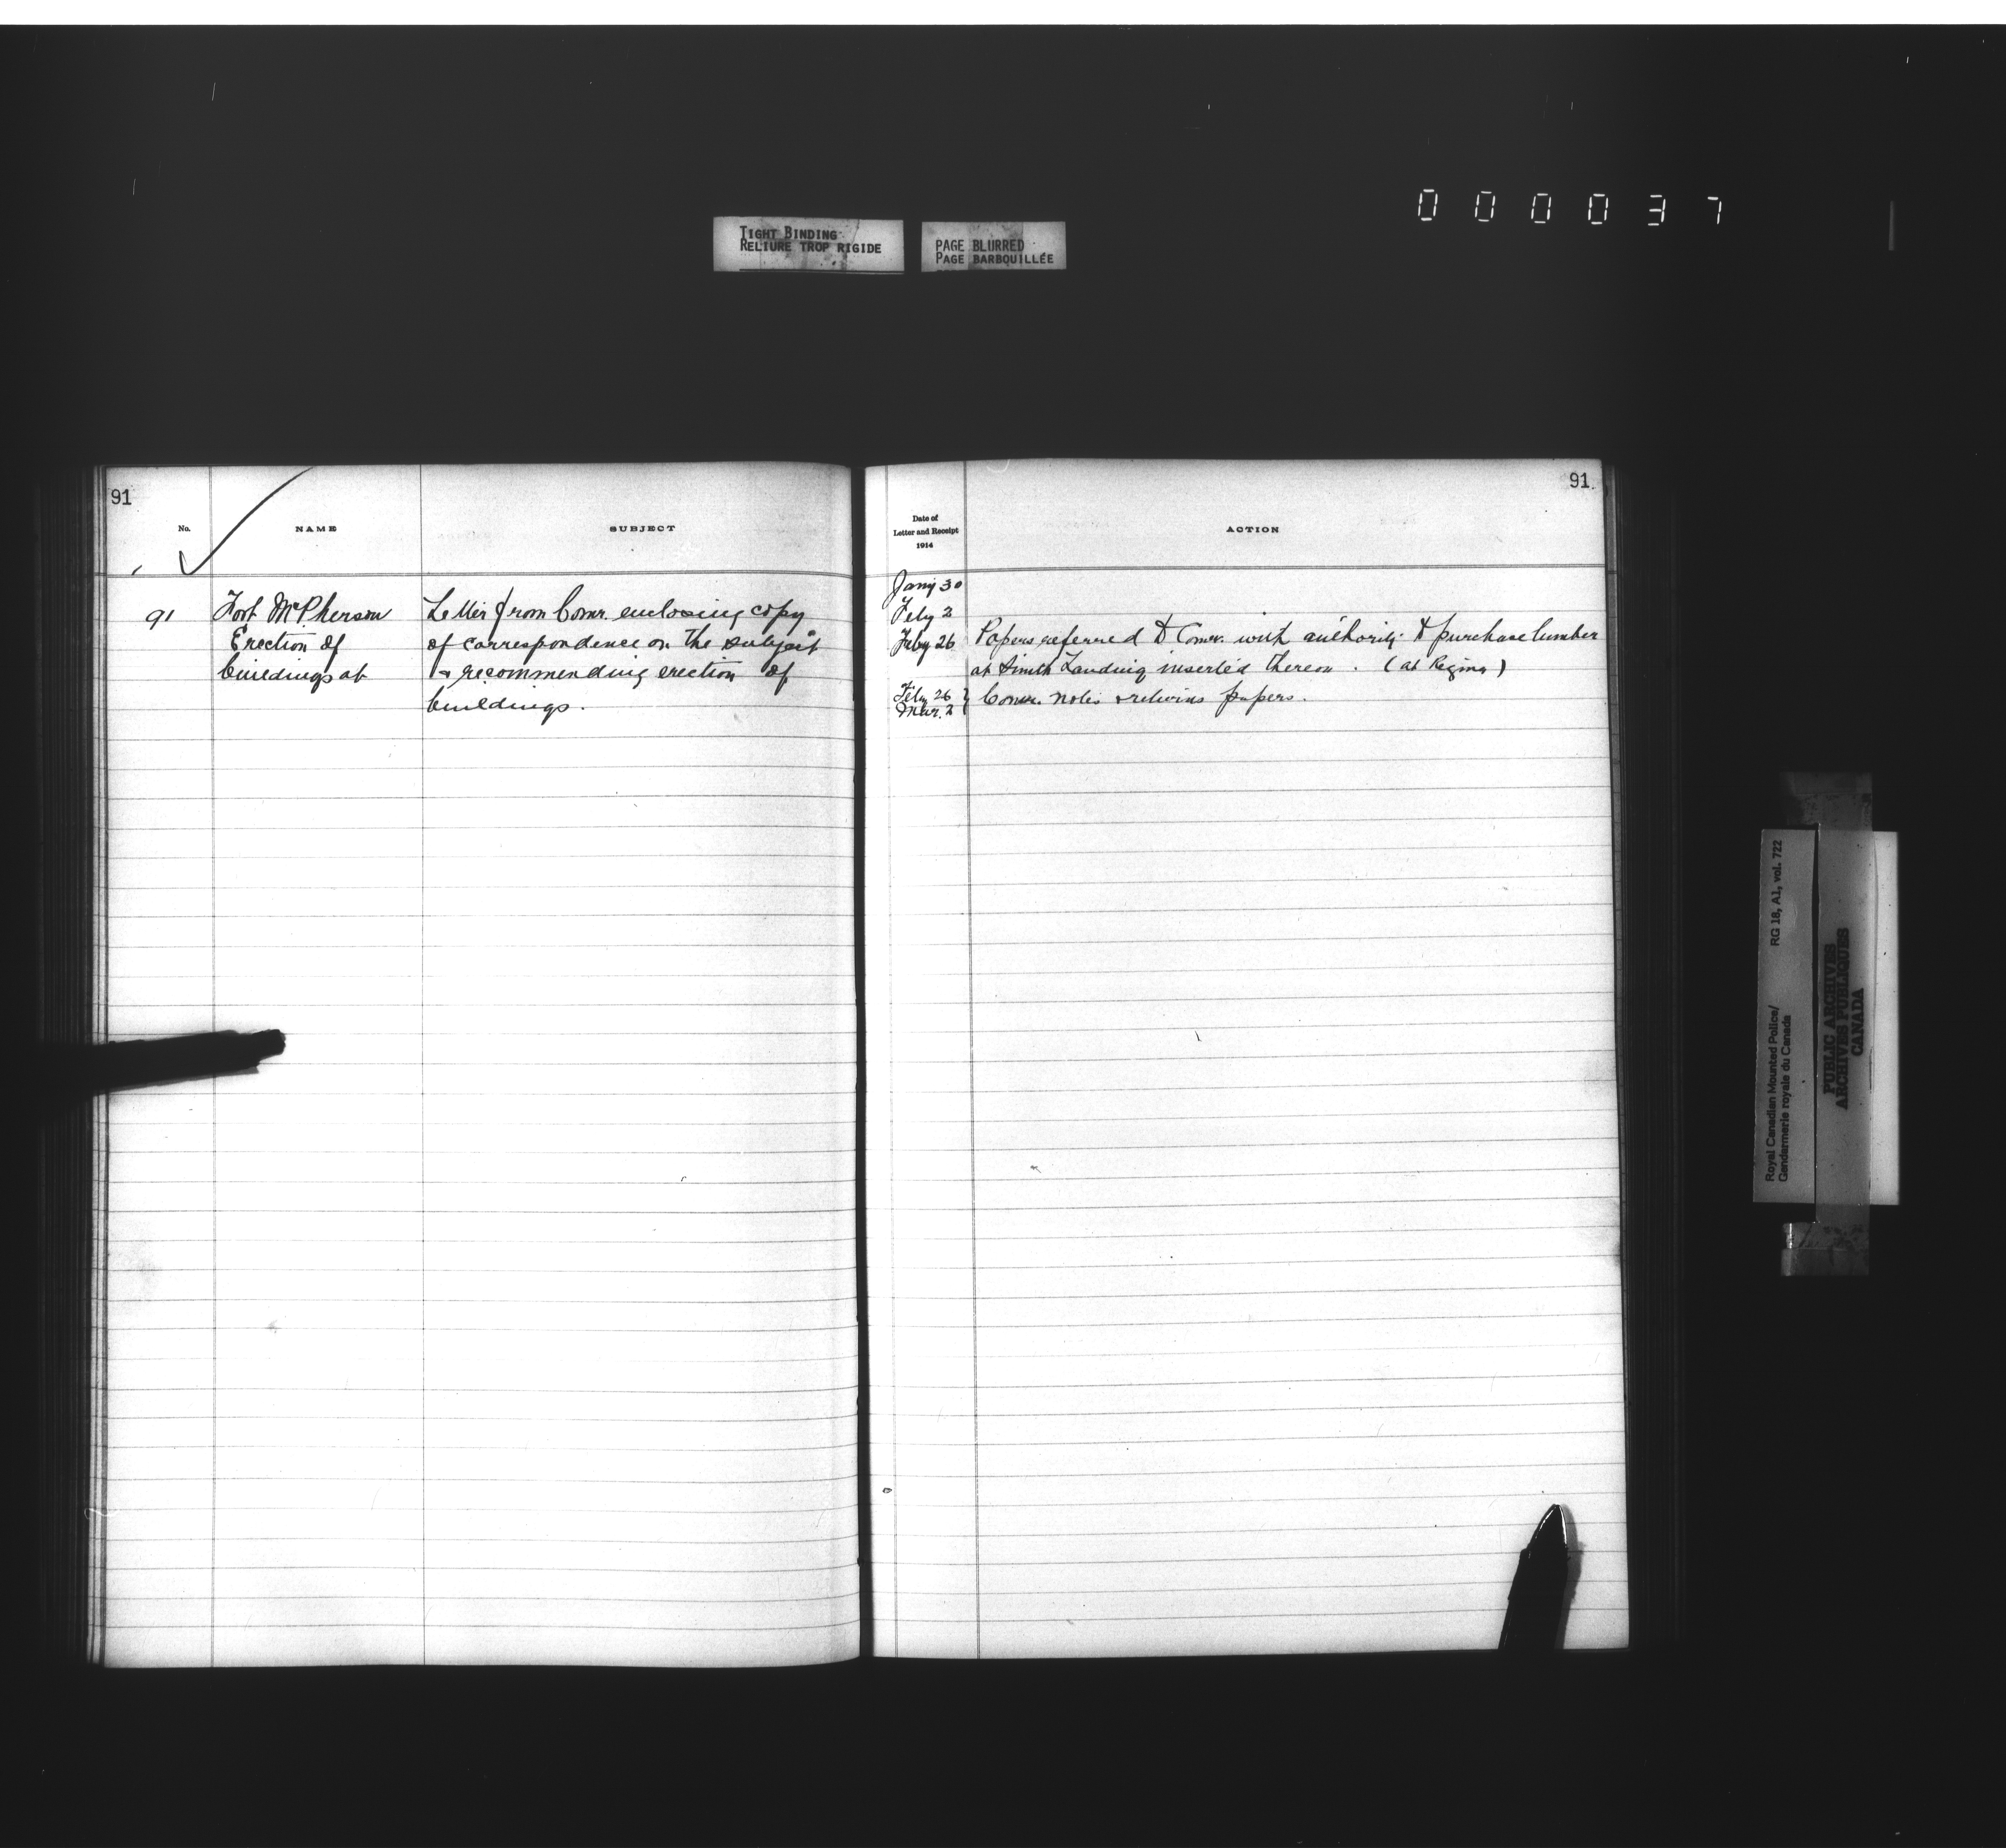 000037
TIGHT BINDING
RELIURE TROP RIGIDE
PAGE BLURRED
PAGE BARBOUILLÉE
91
No.
NAME
SUBJECT
91
Fort McPherson
Erection of
buildings at
Letter from Comr. enclosing copy
of correspondence on the subject
& recommending erection of
buildings.
91.
Date of
Letter and Receipt
1914
ACTION
Jany 30
Feby 2
Feby 26 Papers referred to Comr. with authority to purchase lumber
at Smith Landing inserted thereon. (at Regina)
Feby 26
Mar. 2
Comr. notes & returns papers.
Royal Canadian Mounted Police/
Gendarmerie royale du Canada
RG 18, A1, vol. 722
PUBLIC ARCHIVES
ARCHIVES PUBLIQUES
CANADA